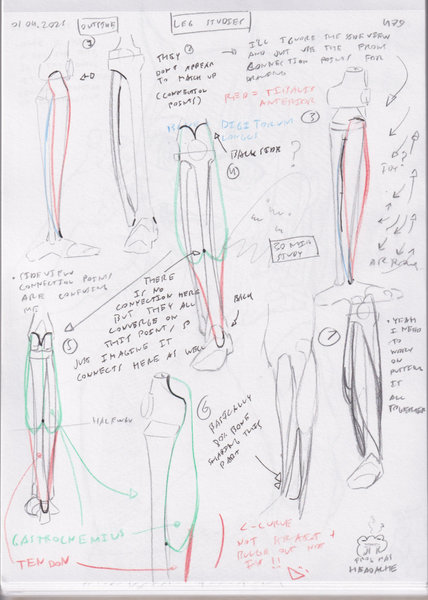 01.04.2021
OUTSIDE
LEG STUDIES
1
2
THEY
DON'T APPEAR
TO MATCH UP
(CONNECTION
POINTS)
I'LL IGNORE THE SIDE VIEW
AND JUST USE THE FRONT
CONNECTION POINTS FOR
DRAWING
RED = TIBIALIS
ANTERIOR
3
DIGITORUM
LONGUS
BACKSIDE
?
4
30 MIN
STUDY
• SIDE VIEW
CONNECTION POINTS
ARE CONFUSING
ME
THERE
IS NO
CONNECTION HERE
BUT THEY ALL
CONVERGE ON
THIS POINT, SO
JUST IMAGINE IT
CONNECTS HERE AS WELL
BACK
5
HALFWAY
6
BASICALLY
PART
7
• YEAH
I NEED
TO WORK
ON
PUTTING
IT
ALL
TOGETHER
GASTROCNEMIUS
TENDON
C-CURVE
NOT STRAIGHT +
BULGE OUT NOT
IN!!
FROG HAS
HEADACHE